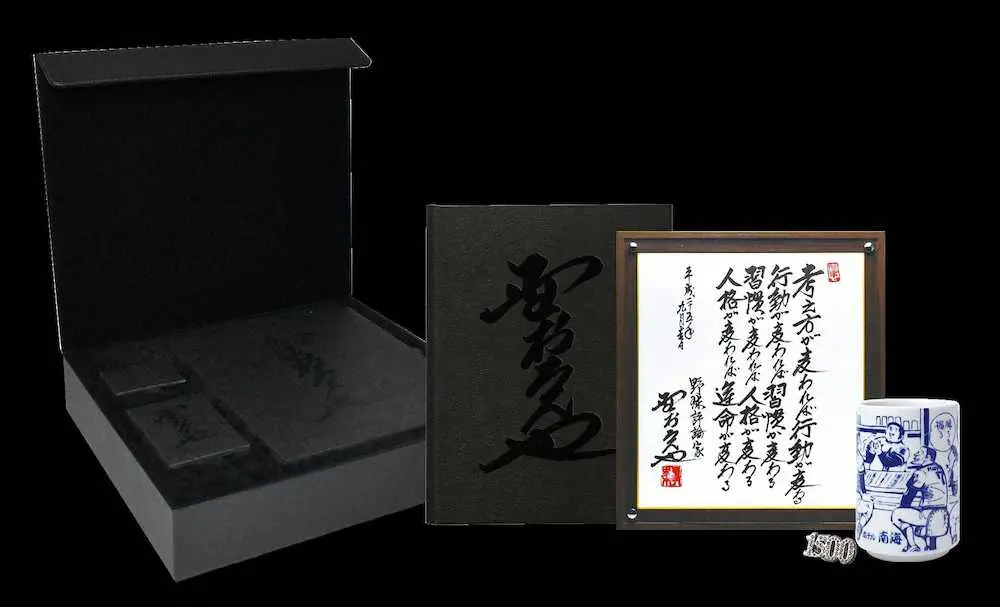 考え方が変われば行動が変わる
行動が変われば習慣が変わる
習慣が変われば人格が変わる
人格が変われば運命が変わる
平成二十五年
九月吉日
野球評論家
野村克也
野村克也
1500
ホテル 南海